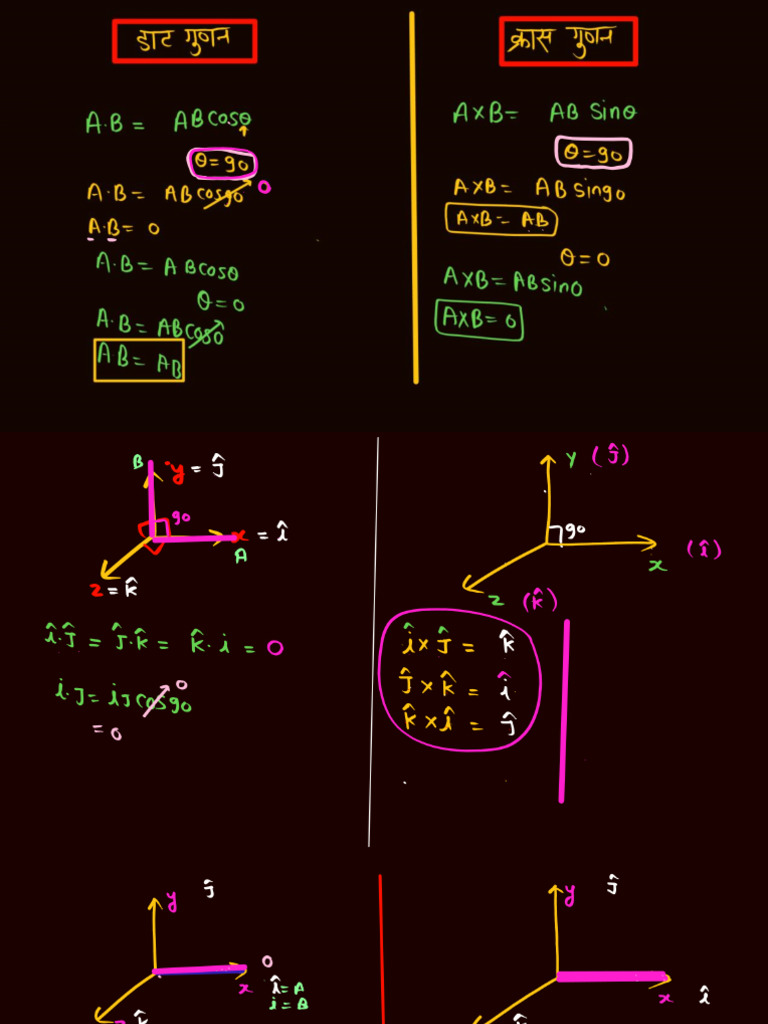 डाट गुणन
A.B = ABcosθ
θ=90
A.B = ABcos90 0
A.B= 0
A.B = ABcosθ
θ=0
A.B = ABcos0
AB = AB
क्रास गुणन
A×B= AB Sinθ
θ=90
A×B= AB Sin90
A×B= AB
θ=0
A×B= ABsin0
A×B= 0
B y = ĵ
90
x = î
A
z = k̂
î.ĵ = ĵ.k̂ = k̂.i = 0
i.j = ij cos90 0
= 0
Y (ĵ)
90
x (î)
z (k̂)
î×ĵ = k̂
ĵ×k̂ = i
k̂×î = ĵ
y ĵ
0
x î=A
i=B
k̂
y ĵ
x î
k̂